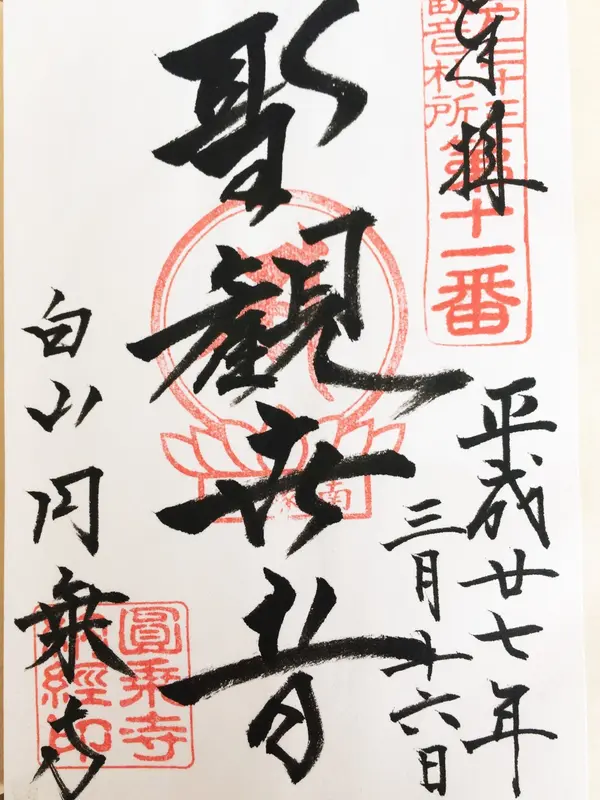 奉拝
三十三
観音札所
第十一番
平成廿七年
三月十六日
聖観世音
白山円乗寺
圓乗寺
納経印